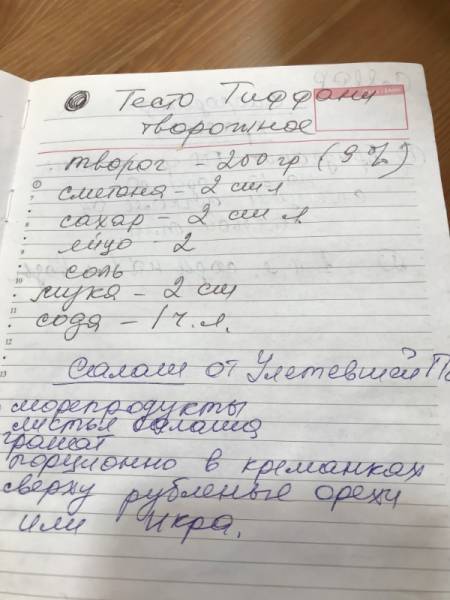 Тесто Тиффани
творожное
творог - 200 гр (9%)
сметана - 2 ст л
сахар - 2 ст л.
яйцо - 2
соль
мука - 2 ст
сода - 1 ч.л.
Салат от Улетевшей
морепродукты
листья салата
гранат
порционно в креманках
сверху рубленые орехи
или икра.